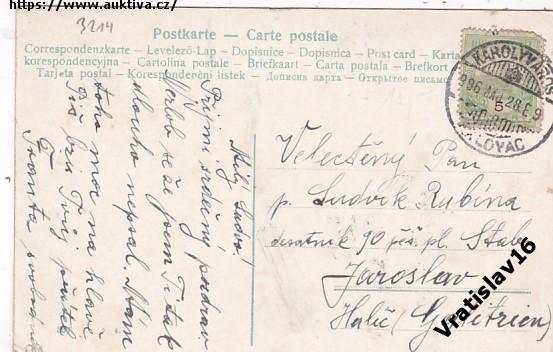 https://www.auktiva.cz/
3214
Postkarte — Carte postale
Correspondenzkarte – Levelező-Lap – Dopisnice – Dopisnica – Post card – Karta
korespondencyjna – Cartolina postale – Briefkaart – Carta postala – Brefkort
Tarjeta postal – Korespondenční listek – Дописна карта – Открытое письмо
KÁROLYVÁROS
896 MÁJ 28 E 9
LOVAC
5
Milý Ludvo!
Přijmi srdečný pozdrav
Nezlob se že jsem Ti tak
dlouho nepsal. Mám
toho moc na hlavě
Tvůj přítel
Franta
Velectěný Pan
p. Ludvík Rubína
desátník 90 pěš. pl. Stab
Jaroslav
Halič (Galizien)
Vratislav16